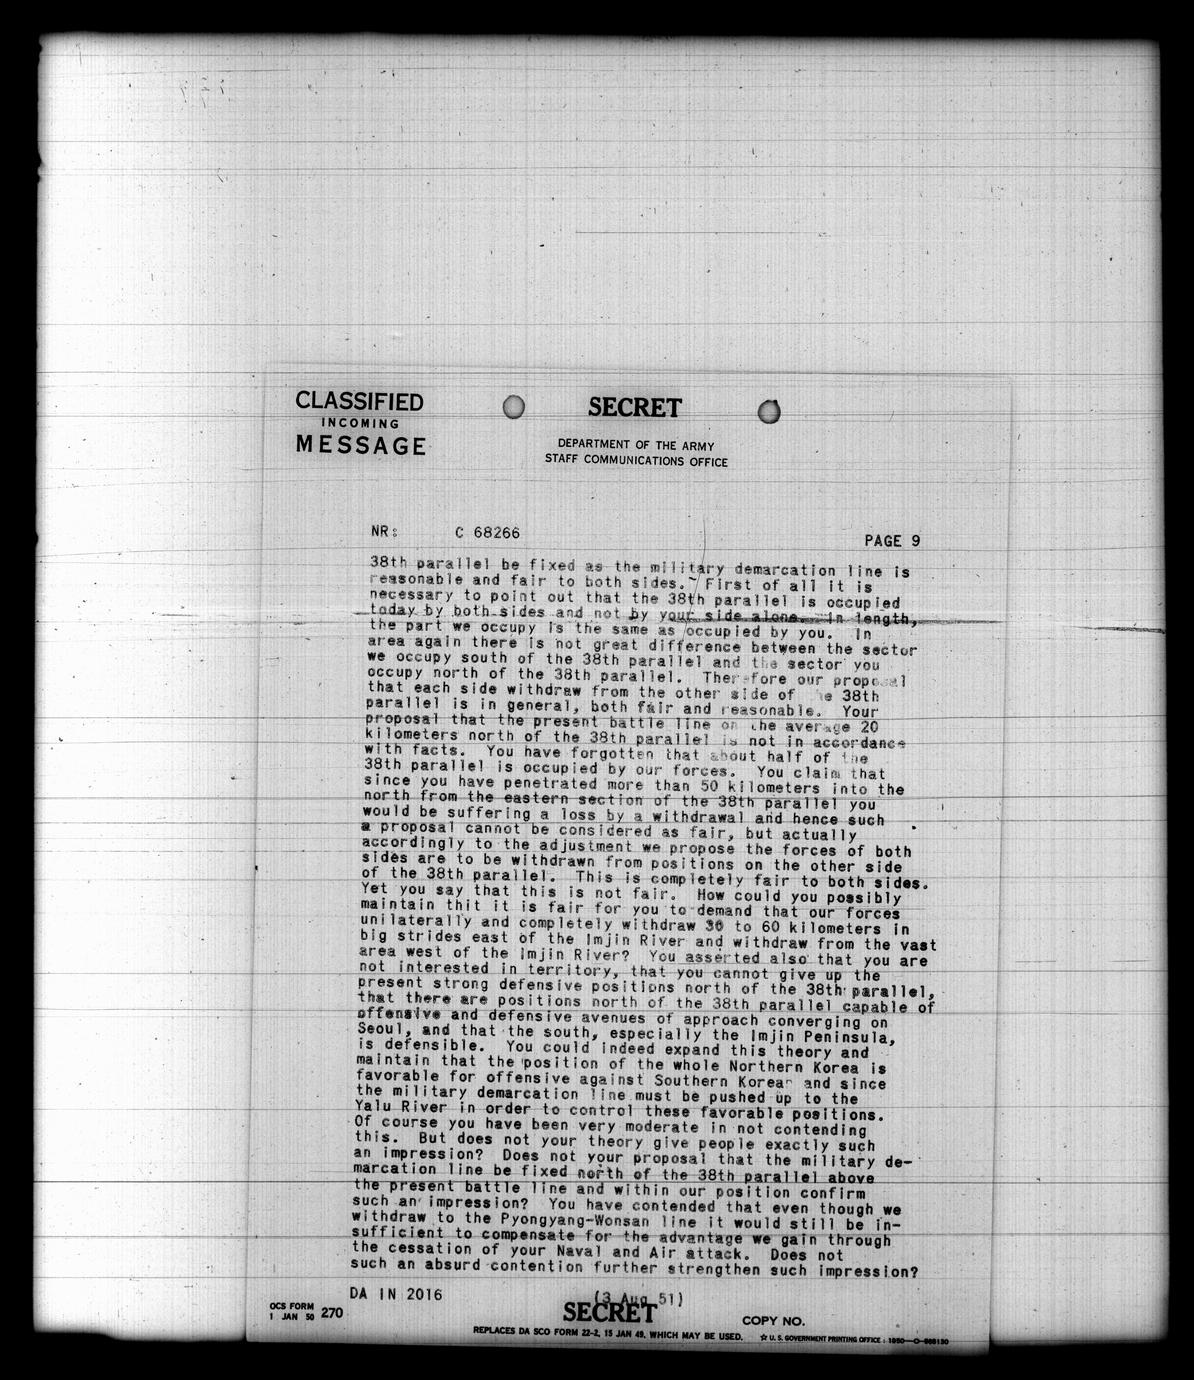 CLASSIFIED
INCOMING
MESSAGE
SECRET
DEPARTMENT OF THE ARMY
STAFF COMMUNICATIONS OFFICE
NR: C 68266
PAGE 9
38th parallel be fixed as the military demarcation line is
reasonable and fair to both sides. First of all it is
necessary to point out that the 38th parallel is occupied
today by both sides and not by your side alone. In length,
the part we occupy is the same as occupied by you. In
area again there is not great difference between the sector
we occupy south of the 38th parallel and the sector you
occupy north of the 38th parallel. Therefore our proposal
that each side withdraw from the other side of the 38th
parallel is in general, both fair and reasonable. Your
proposal that the present battle line on the average 20
kilometers north of the 38th parallel is not in accordance
with facts. You have forgotten that about half of the
38th parallel is occupied by our forces. You claim that
since you have penetrated more than 50 kilometers into the
north from the eastern section of the 38th parallel you
would be suffering a loss by a withdrawal and hence such
a proposal cannot be considered as fair, but actually
accordingly to the adjustment we propose the forces of both
sides are to be withdrawn from positions on the other side
of the 38th parallel. This is completely fair to both sides.
Yet you say that this is not fair. How could you possibly
maintain thit it is fair for you to demand that our forces
unilaterally and completely withdraw 30 to 60 kilometers in
big strides east of the Imjin River and withdraw from the vast
area west of the Imjin River? You asserted also that you are
not interested in territory, that you cannot give up the
present strong defensive positions north of the 38th parallel,
that there are positions north of the 38th parallel capable of
offensive and defensive avenues of approach converging on
Seoul, and that the south, especially the Imjin Peninsula,
is defensible. You could indeed expand this theory and
maintain that the position of the whole Northern Korea is
favorable for offensive against Southern Korea and since
the military demarcation line must be pushed up to the
Yalu River in order to control these favorable positions.
Of course you have been very moderate in not contending
this. But does not your theory give people exactly such
an impression? Does not your proposal that the military de-
marcation line be fixed north of the 38th parallel above
the present battle line and within our position confirm
such an impression? You have contended that even though we
withdraw to the Pyongyang-Wonsan line it would still be in-
sufficient to compensate for the advantage we gain through
the cessation of your Naval and Air attack. Does not
such an absurd contention further strengthen such impression?
DA IN 2016 (3 Aug 51)
OCS FORM
1 JAN 50 270
SECRET
COPY NO.
REPLACES DA SCO FORM 22-2, 15 JAN 49, WHICH MAY BE USED. ☆ U. S. GOVERNMENT PRINTING OFFICE : 1950—O